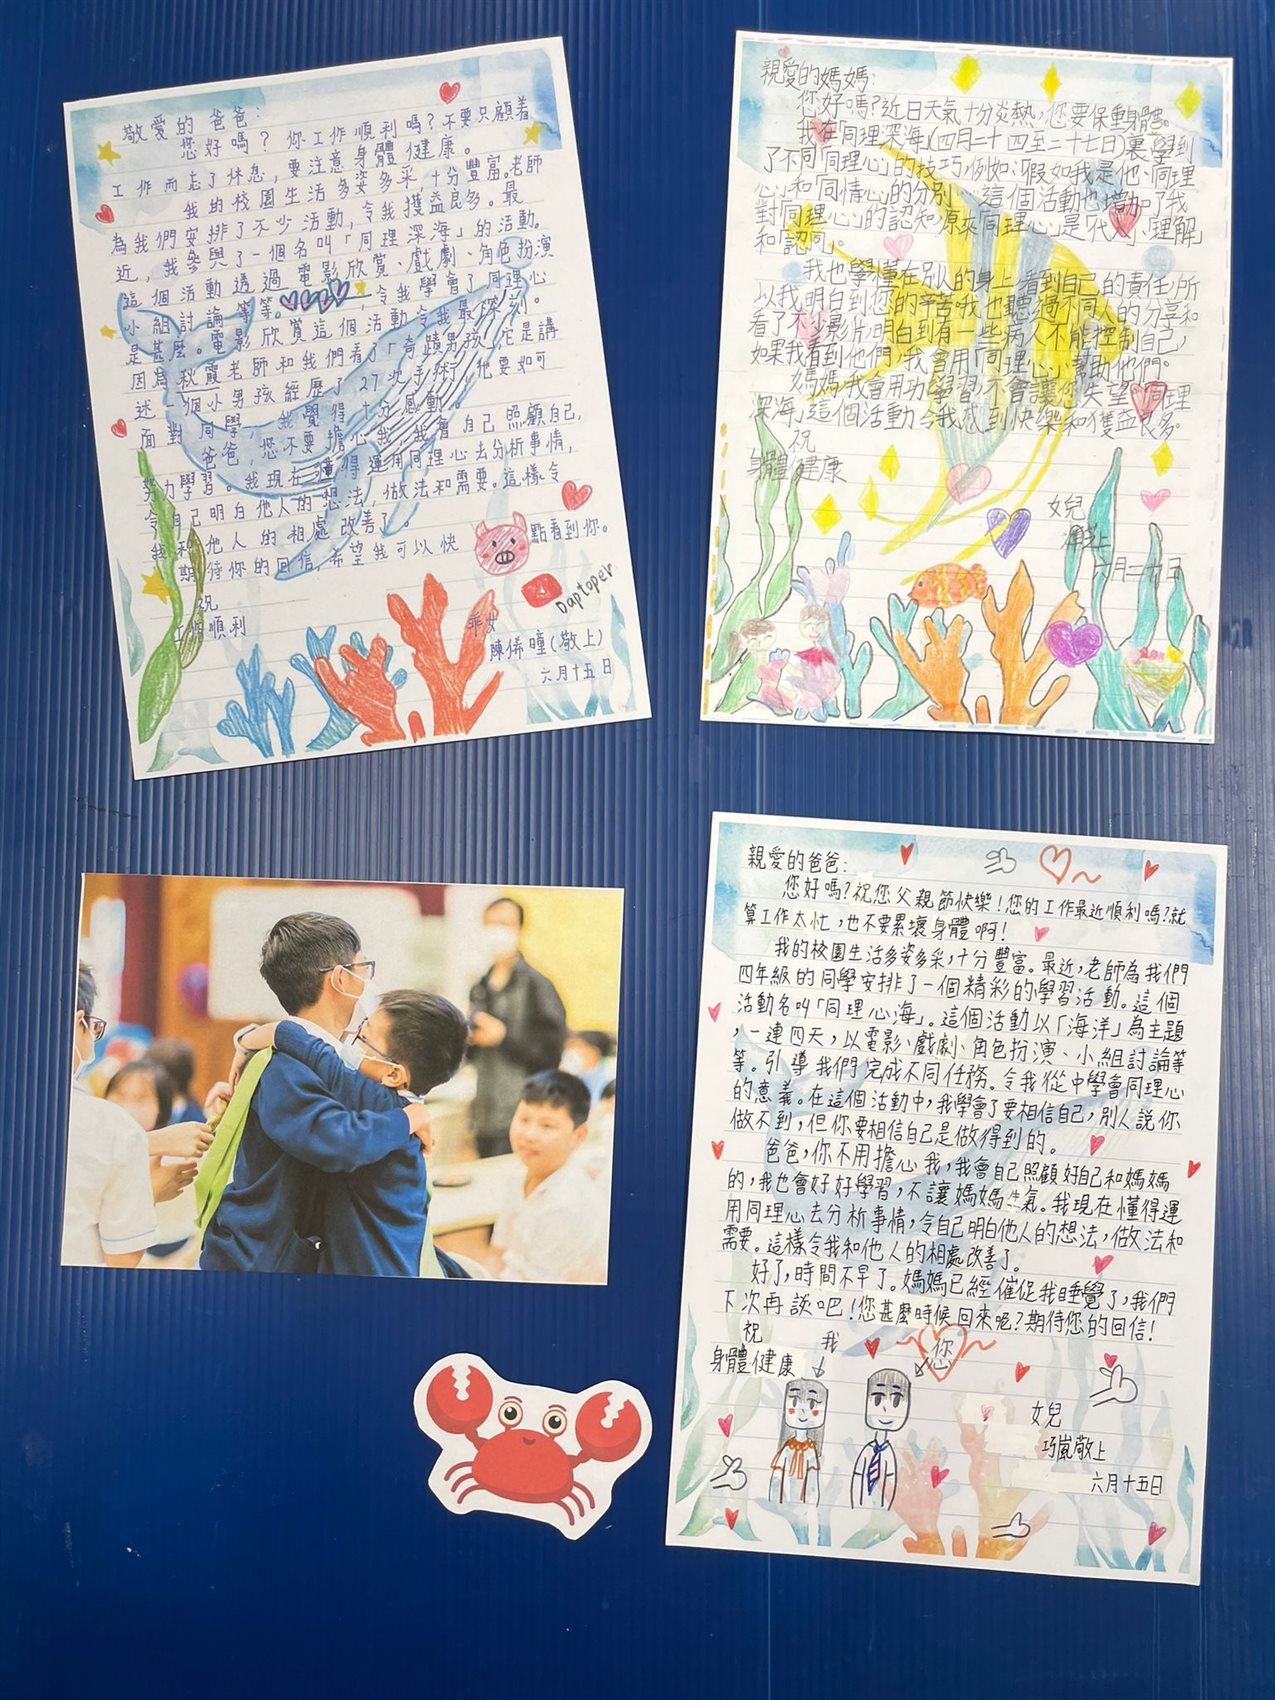 敬愛的爸爸：
您好嗎？你工作順利嗎？不要只顧着
工作而忘了休息，要注意身體健康。
我的校園生活多姿多采，十分豐富。老師
為我們安排了不少活動，令我獲益良多。最
近，我參與了一個名叫「同理深海」的活動。
這個活動透過電影欣賞、戲劇、角色扮演
小組討論等等。令我學會了同理心
是甚麼。電影欣賞這個活動令我最深刻。
因為秋霞老師和我們看了「奇蹟男孩」它是講
述一個小男孩經歷了27次手術，他要如何
面對同學，我覺得十分感動。
爸爸，您不要擔心我，我會自己照顧自己，
努力學習。我現在懂得運用同理心去分析事情，
令自己明白他人的想法，做法和需要。這樣令
我和他人的相處改善了。
期待你的回信，希望我可以快點看到你。
祝
工作順利
Daptoper
乖女
陳俙曈（敬上）
六月十五日
親愛的媽媽：
您好嗎？近日天氣十分炎熱，您要保重身體。
我在「同理深海」（四月二十四至二十七日）裏學到
了不同「同理心」的技巧，例如：「假如我是他、同理
心」和「同情心」的分別……這個活動也增加了我
對「同理心」的認知，原來「同理心」是「代入」、「理解」
和「認同」。
我也學懂在別人的身上看到自己的責任，所
以我明白到您的辛苦。我也聽過不同人的分享和
看了不少影片，明白到有一些病人不能控制自己，
如果我看到他們，我會用「同理心」幫助他們。
媽媽，我會用功學習，不會讓您失望。「同理
深海」這個活動令我感到快樂和獲益良多。
祝
身體健康
女兒
上
六月二十五
親愛的爸爸：
您好嗎？祝您父親節快樂！您的工作最近順利嗎？就
算工作太忙，也不要累壞身體啊！
我的校園生活多姿多采，十分豐富。最近，老師為我們
四年級的同學安排了一個精彩的學習活動。這個
活動名叫「同理心海」。這個活動以「海洋」為主題
，一連四天，以電影、戲劇、角色扮演、小組討論等
等。引導我們完成不同任務。令我從中學會同理心
的意義。在這個活動中，我學會了要相信自己，別人說你
做不到，但你要相信自己是做得到的。
爸爸，你不用擔心我，我會自己照顧好自己和媽媽
的，我也會好好學習，不讓媽媽生氣。我現在懂得運
用同理心去分析事情，令自己明白他人的想法，做法和
需要。這樣令我和他人的相處改善了。
好了，時間不早了。媽媽已經催促我睡覺了，我們
下次再談吧！您甚麼時候回來呢？期待您的回信！
祝
身體健康
我
您
女兒
巧嵐敬上
六月十五日